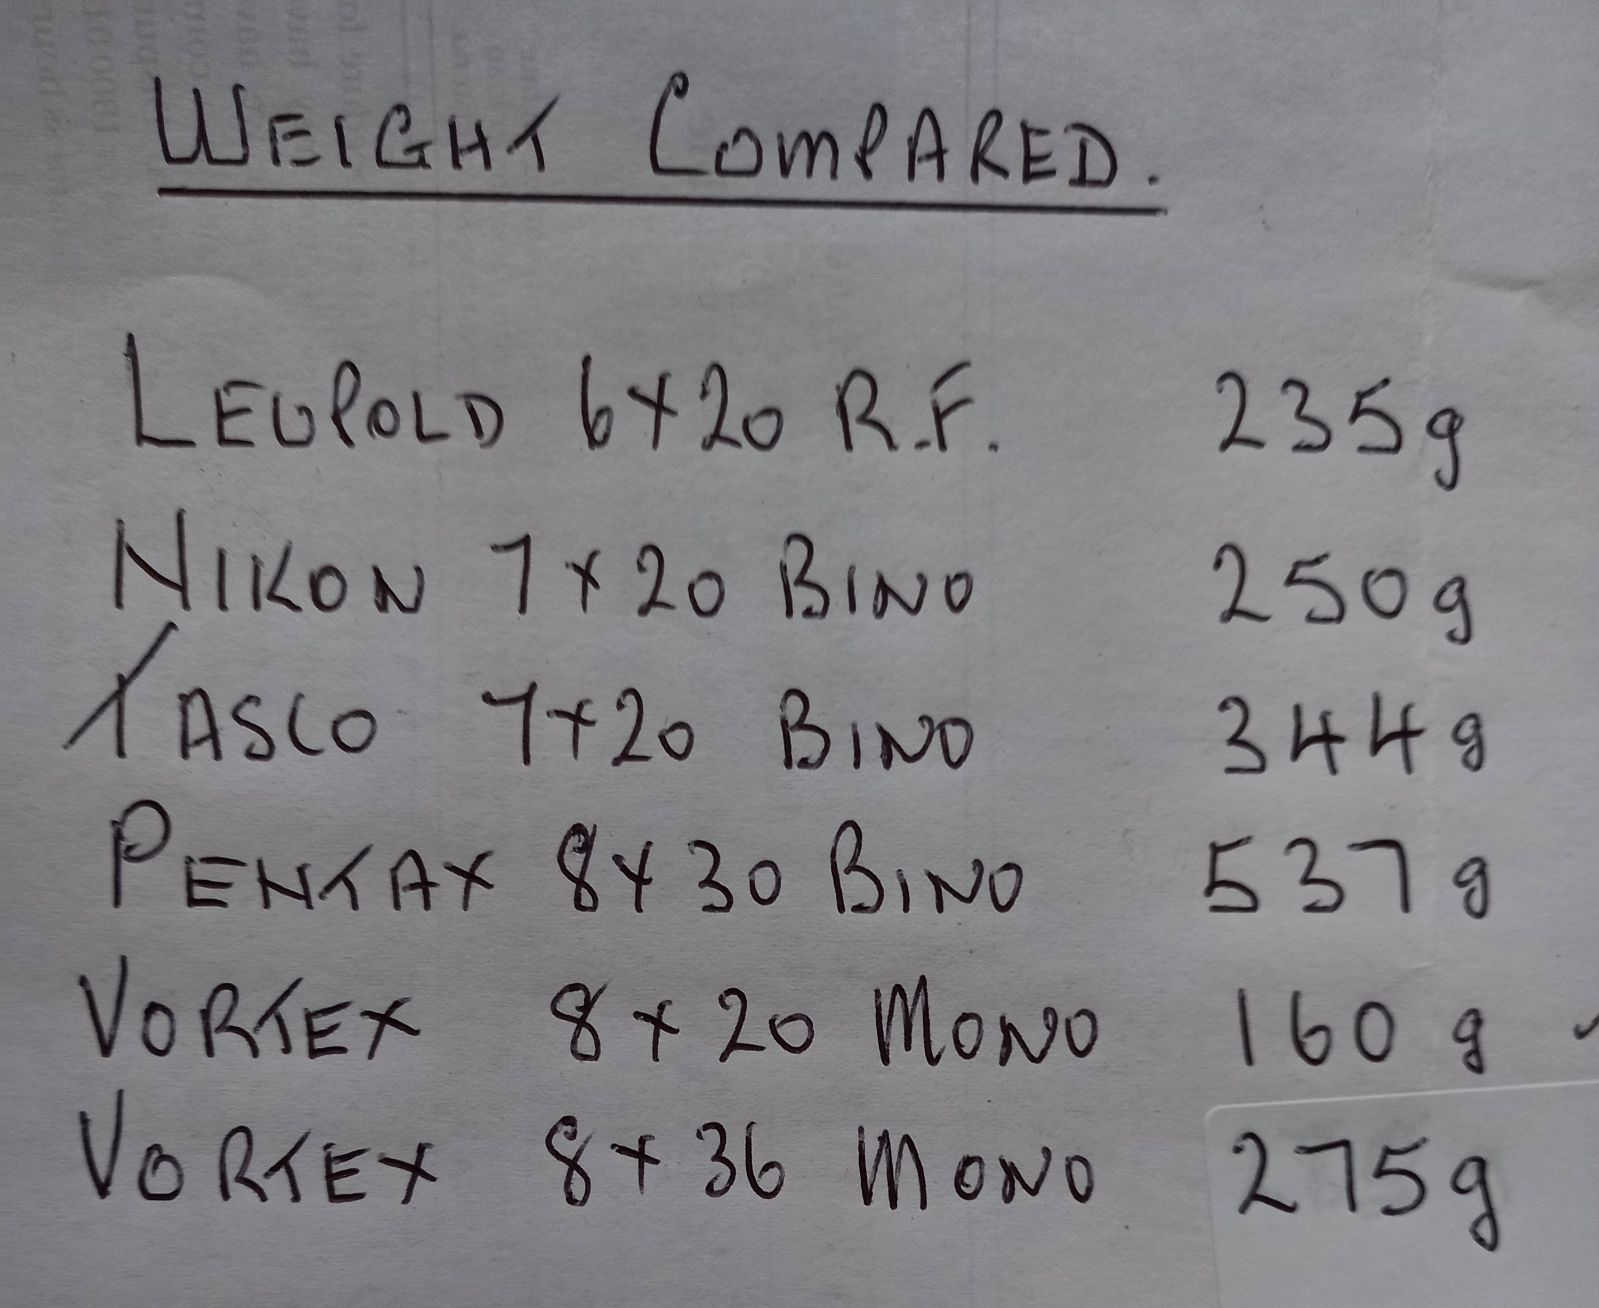 WEIGHT COMPARED.
LEUPOLD 6x20 R.F. 235g
NIKON 7x20 BINO 250g
TASCO 7x20 BINO 344g
PENTAX 8x30 BINO 537g
VORTEX 8x20 MONO 160g
VORTEX 8x36 MONO 275g